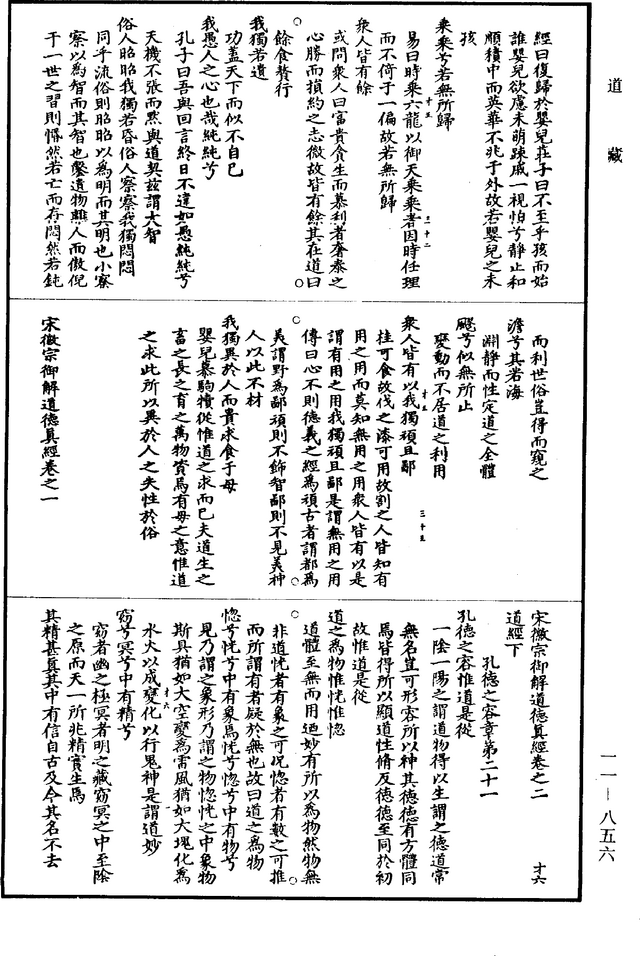 道藏
經曰復歸於嬰兒莊子曰不至乎孩而始
誰嬰兒欲慮未萌踈戚一視怕兮靜止和
順積中而英華不兆于外故若嬰兒之未
孩
乘乘兮若無所歸
易曰時乘六龍以御天乘乘者因時任理
而不倚于一偏故若無所歸
衆人皆有餘
或問衆人曰富貴貪生而慕利者奢泰之
心勝而損約之志微故皆有餘其在道曰
餘食贅行
我獨若遺
功蓋天下而似不自己
我愚人之心也哉純純兮
孔子曰吾與回言終日不違如愚純純兮
天機不張而黙與道契兹謂大智
俗人昭昭我獨若昏俗人察察我獨悶悶
同乎流俗則昭昭以為明而其明也小察
察以為智而其智也鑿遺物離人而傲倪
于一世之習則惛然若亡而存悶然若鈍
而利世俗豈得而窺之
澹兮其若海
淵靜而性定道之全體
飂兮似無所止
變動而不居道之利用
衆人皆有以我獨頑且鄙
桂可食故伐之漆可用故割之人皆知有
用之用而莫知無用之用衆人皆有以是
謂有用之用我獨頑且鄙是謂無用之用
傳曰心不則德義之經為頑古者謂都為
美謂野為鄙頑則不飾智鄙則不見美神
人以此不材
我獨異於人而貴求食于母
嬰兒慕駒犢從惟道之求而已夫道生之
畜之長之育之萬物資焉有母之意惟道
之求此所以異於人之失性於俗
宋徽宗御解道德真經卷之一
宋徽宗御解道德真經卷之二 才六
道經下
孔德之容章第二十一
孔德之容惟道是從
一陰一陽之謂道物得以生謂之德道常
無名豈可形容所以神其德德有方體同
焉皆得所以顯道性脩反德德至同於初
故惟道是從
道之為物惟恍惟惚
道體至無而用迺妙有所以為物然物無
非道恍者有象之可况惚者有數之可推
而所謂有者疑於無也故曰道之為物
惚兮恍兮中有象焉恍兮惚兮中有物兮
見乃謂之象形乃謂之物惚恍之中象物
斯具猶如大空變為雷風猶如大塊化為
水火以成變化以行鬼神是謂道妙
窈兮冥兮中有精兮
窈者幽之極冥者明之藏窈冥之中至陰
之原而天一所兆精實生焉
其精甚真其中有信自古及今其名不去
一一—八五六